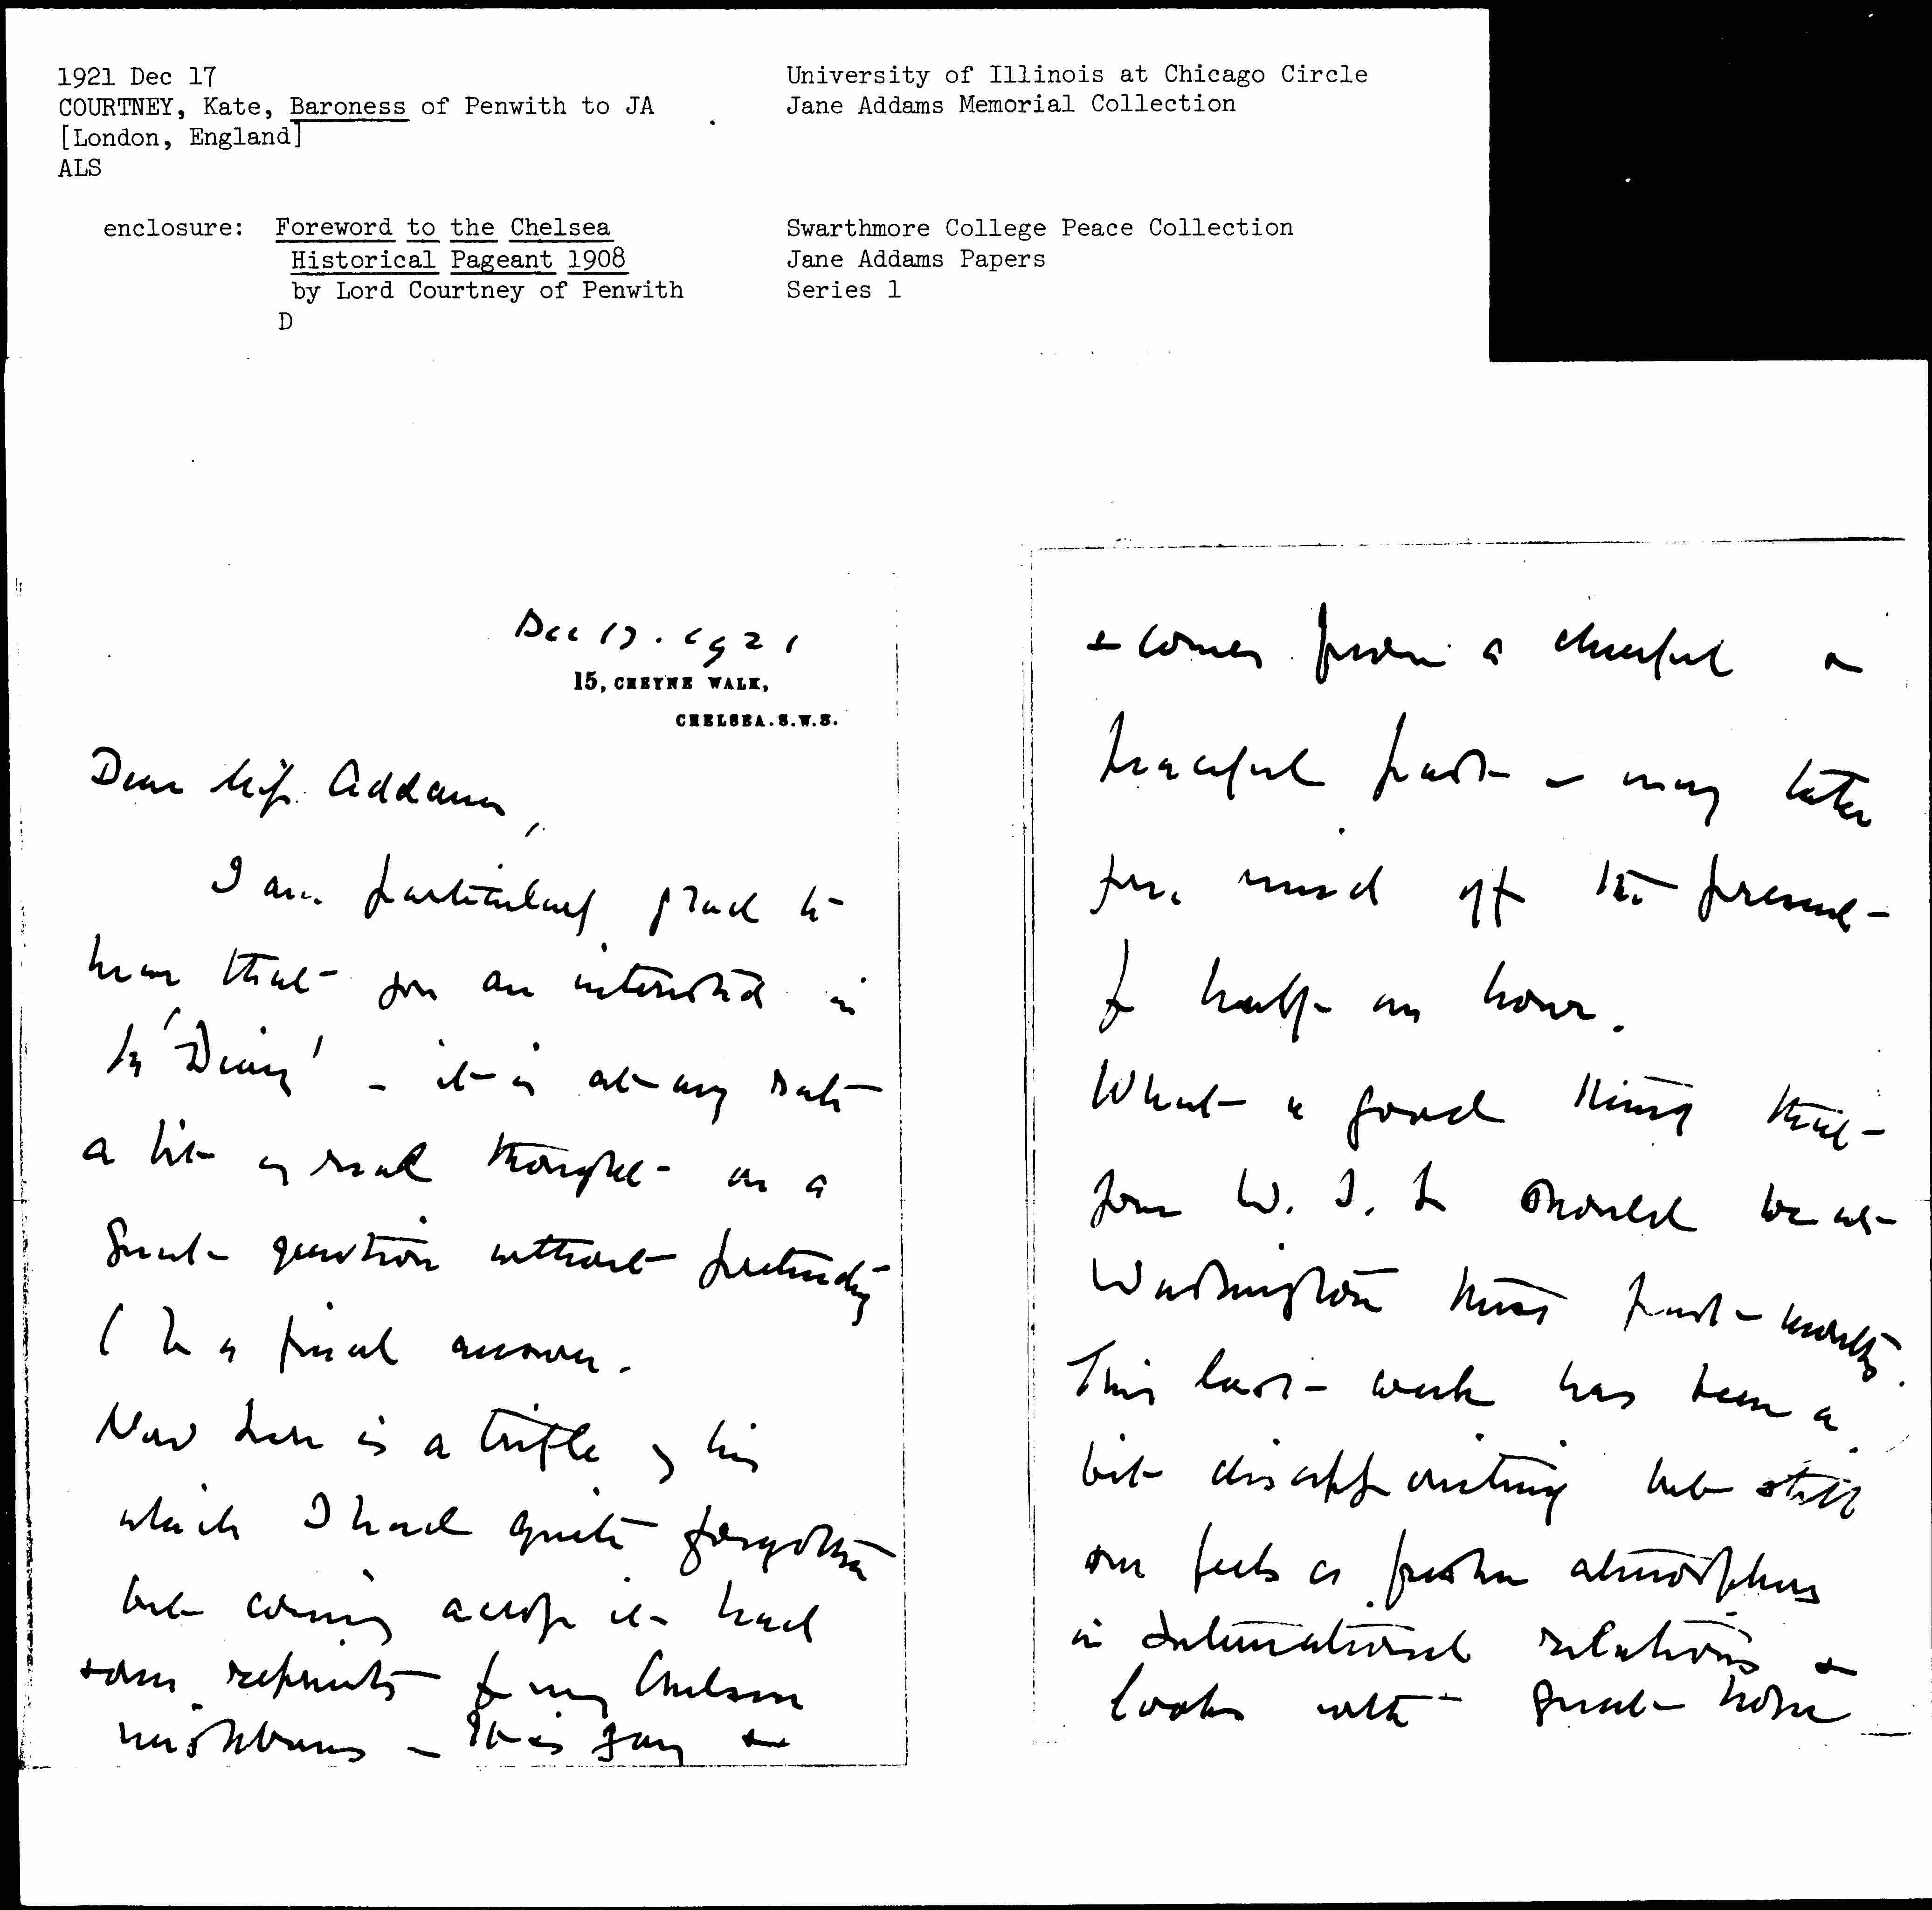 1921 Dec 17
COURTNEY, Kate, Baroness of Penwith to JA
[London, England]
ALS
enclosure: Foreword to the Chelsea
Historical Pageant 1908
by Lord Courtney of Penwith
D
University of Illinois at Chicago Circle
Jane Addams Memorial Collection
Swarthmore College Peace Collection
Jane Addams Papers
Series 1
Dec 17. 1921
15, CHEYNE WALK,
CHELSEA. S.W.3.
Dear Miss Addams,
I am particularly glad to
hear that you are interested in
'Diary' - it is at any rate
a bit of real thought on a
great question without pretending
to be a final answer.
Now here is a trifle of his
which I had quite forgotten
but coming across it had
some reprints for my Chelsea
neighbours - It is gay &
& comes from a cheerful &
peaceful past & may take
your mind off the present
for half an hour.
What a good thing that
your W. I. L should be at
Washington this past month.
This last week has been a
bit disappointing but still
one feels a fresher atmosphere
in International relations &
looks with great hope